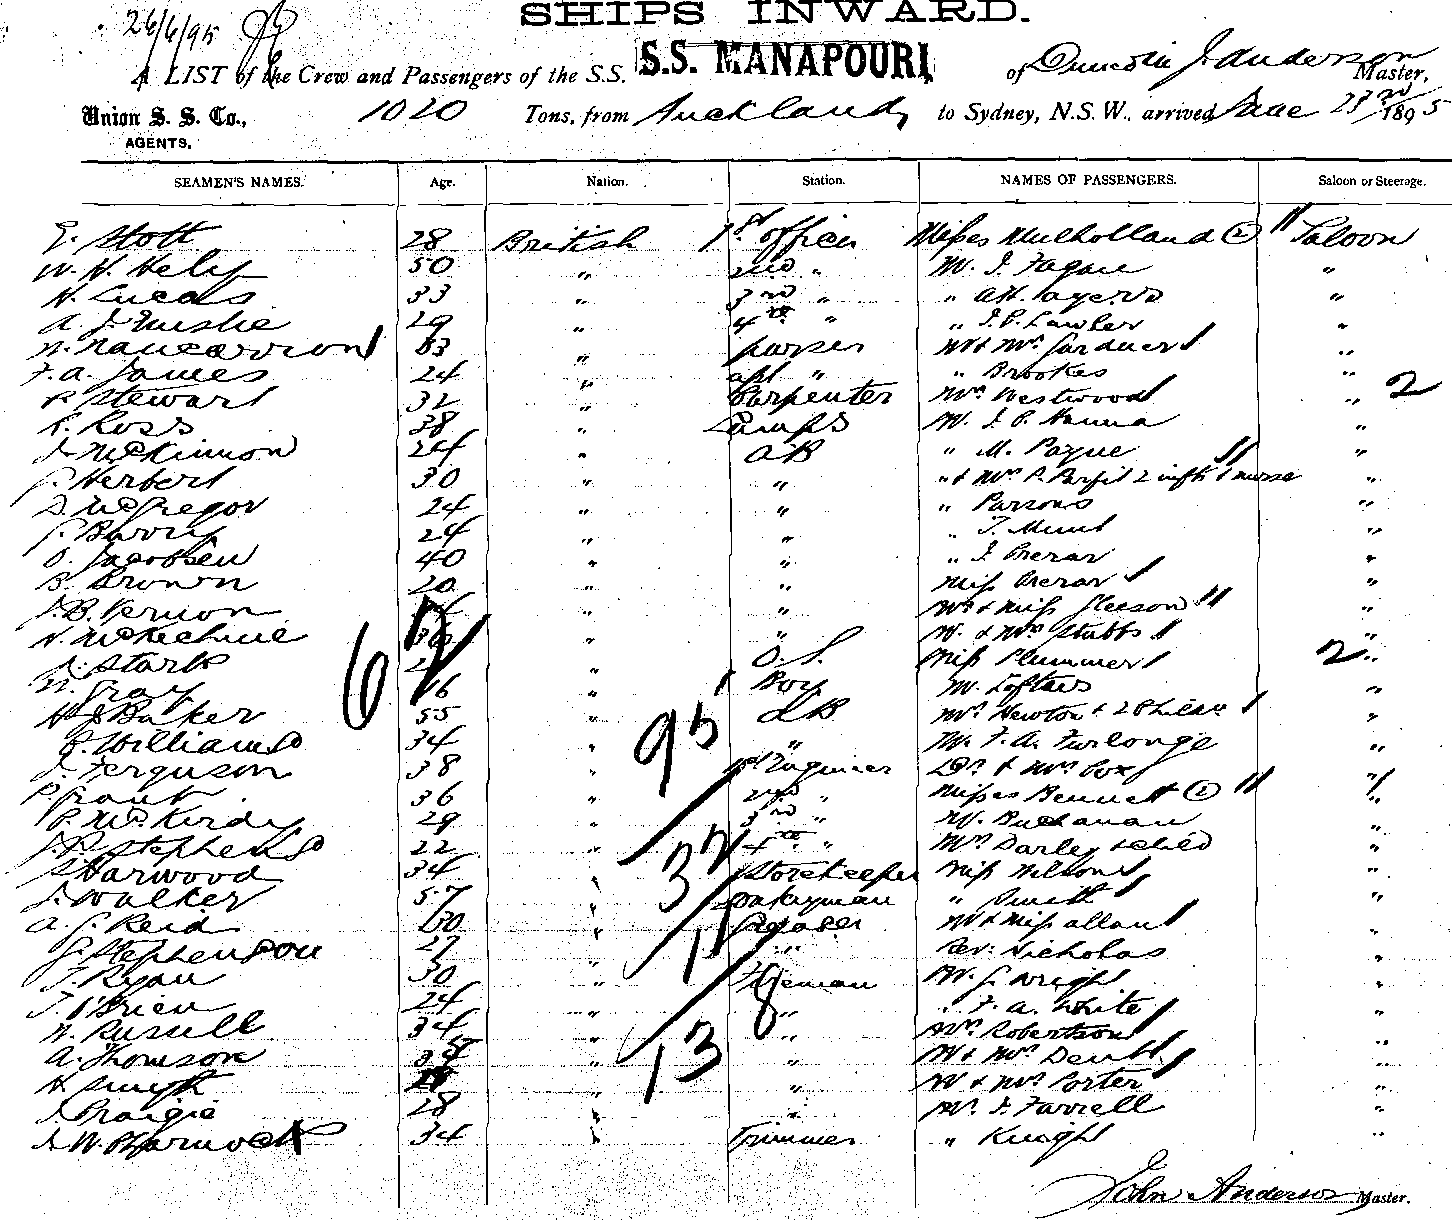 SHIPS INWARD.
26/6/95
A LIST of the Crew and Passengers of the S.S. S.S. MANAPOURI, of Anderson Master,
Union S. S. Co., 1020 Tons, from Auckland to Sydney, N.S.W., arrived June 23rd 1895
AGENTS.
SEAMEN'S NAMES. Age. Nation. Station. NAMES OF PASSENGERS. Saloon or Steerage.
E. Stott 28 British 1st officer Misses Mulholland 2 Saloon
W. H. 50 " 2nd " Mr. J. Fagan "
H. Lucas 33 " 3rd " " "
A. J. 29 " 4th " " J. P. Lawler "
N. Nancarrow 63 " purser Mr & Mrs Gardner "
F. A. James 24 " " " Brookes "
P. Stewart 32 " Carpenter Mrs Westwood " 2
R. Ross 38 " Lamps Mr. J. P. Hanna "
J. McKinnon 24 " AB " M. Payne "
G. Herbert 30 " " " & Mrs P. Parfit 2 infts 1 nurse "
D. McGregor 24 " " " Parsons "
G. Barry 24 " " " T. "
O. Jacobsen 40 " " " J. "
B. Brown 20 " " Miss "
J. B. Vernon " " Mrs & Miss Gleeson "
N. McKechnie " " Mr. & Mrs Stubbs "
J. Stark " O.S. Miss Plummer 2 "
N. Gray 16 " Boy Mr. Loftus "
H. J. Baker 55 " AB Mrs Newton & 2 Children "
R. Williams 34 " " Mr. F. A. Furlonge "
J. Ferguson 38 " 1st Engineer Dr. & Mrs Cox "
P. Grant 36 " 2nd " Misses Bennett 2 "
P. McKirdy 29 " 3rd " Mr. Buchanan "
J. R. Stephens 22 " 4th " Mrs Darley & child "
S. Harwood 34 " Storekeeper Miss Wilson "
J. Walker 57 " Donkeyman " Smith "
A. G. Reid 60 " Greaser Mr & Miss Allan "
G. Stephenson 27 " " Rev. Nicholas "
T. Ryan 30 " Fireman Mr. G. Wright "
T. O'Brien 24 " " " F. A. White "
N. Russell 34 " " Mrs Robertson "
A. Thomson " " Mr & Mrs Dent "
H. Smyth " " Mr & Mrs Porter "
J. Craigie 28 " " Mr. J. Farrell "
J. W. 34 " Trimmer " Knight "
67
95
37
11
8
13
John Anderson Master.